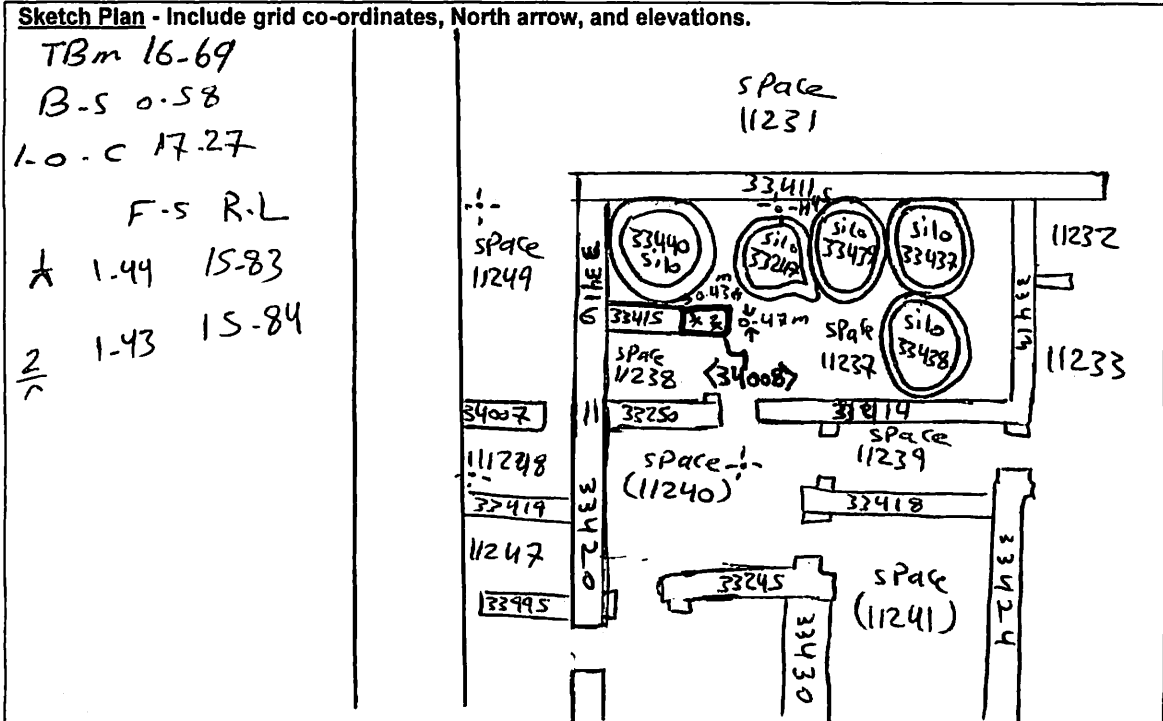 Sketch Plan - Include grid co-ordinates, North arrow, and elevations.
TBm 16-69
B-S 0.58
I-O-C 17.27
F-S R.L
1-44 15-83
1-43 15-84
space
11231
33411
space
11249
33440
silo
silo
33247
silo
33439
silo
33437
11232
33419
33415
0.43m
0.47m
space
11237
silo
33438
33413
11233
space
11238
<34008>
34007
33250
33414
space
11239
11248
space
(11240)
33419
33418
11247
33420
33995
33245
space
(11241)
33424
33430